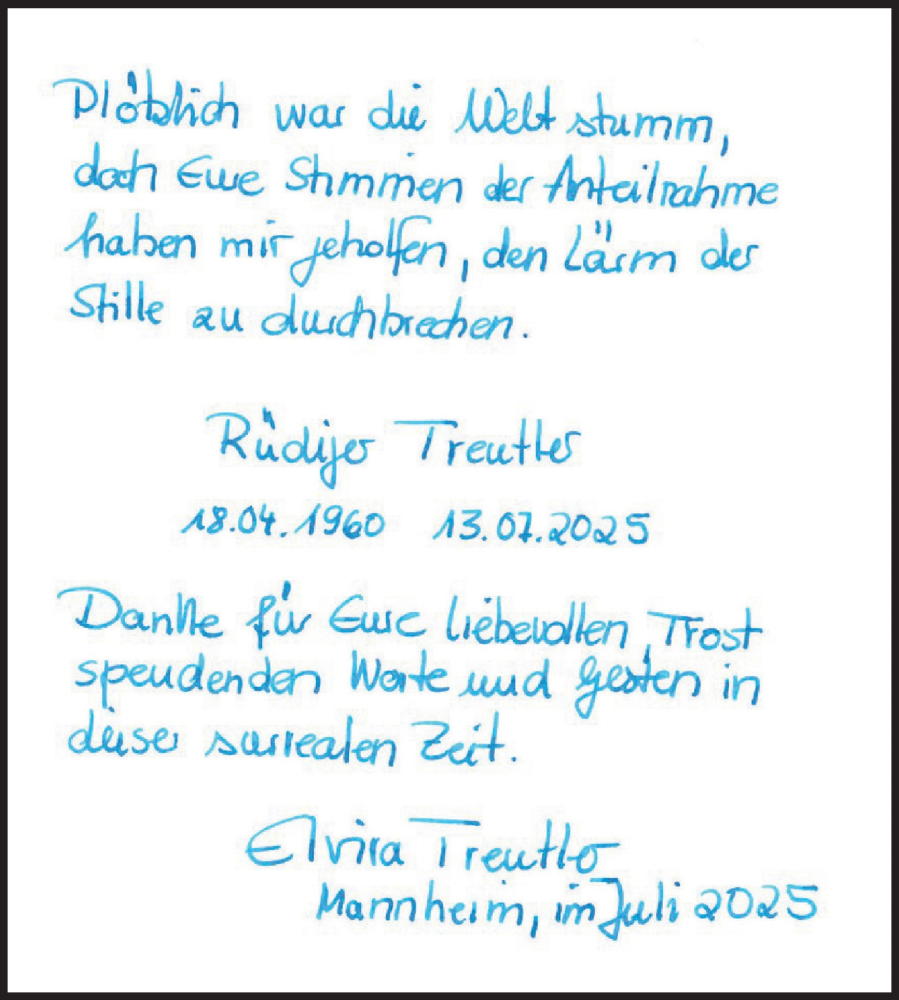 Plötzlich war die Welt stumm,
doch Eure Stimmen der Anteilnahme
haben mir geholfen, den Lärm der
Stille zu durchbrechen.
Rüdiger Treutler
18.04.1960 13.07.2025
Danke für Eure liebevollen, Trost
spendenden Worte und Gesten in
dieser surrealen Zeit.
Elvira Treutler
Mannheim, im Juli 2025